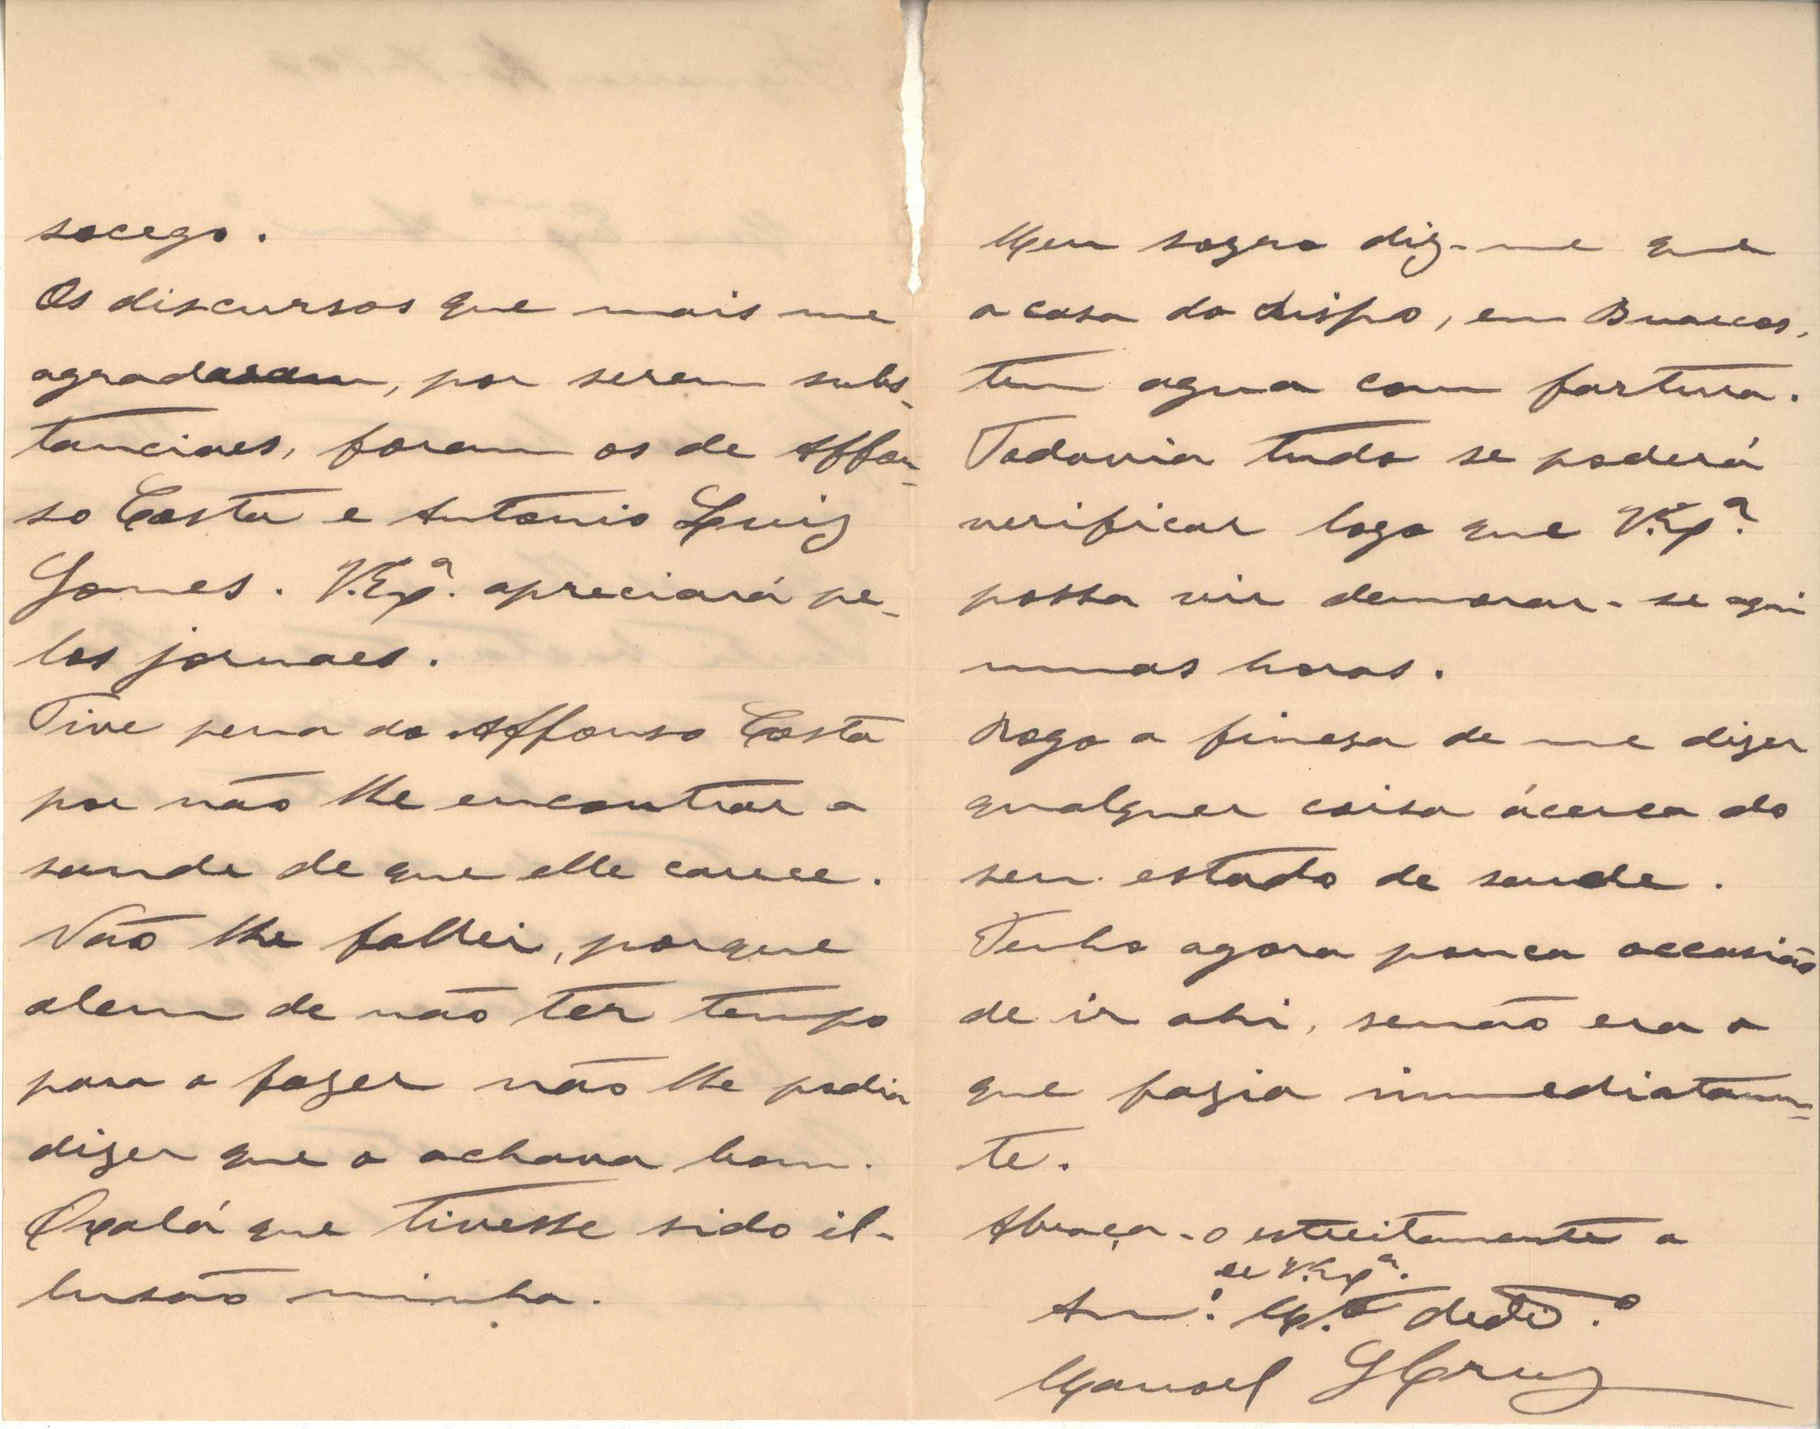 socego.
Os discursos que mais me
agradaram, por serem subs-
tanciaes, foram os de Affon-
so Costa e Antonio Luiz
Gomes. V.Exª. apreciará pe-
los jornaes.
Tive pena do Affonso Costa
por não lhe encontrar a
saude de que elle carece.
Não lhe fallei, porque
alem de não ter tempo
para o fazer não lhe podia
dizer que o achava bom.
Oxalá que tivesse sido il-
lusão minha.
Meu sogro diz-me que
a casa do Bispo, em Buarcos,
tem agua com fartura.
Todavia tudo se poderá
verificar logo que V.Exª.
possa vir demorar-se aqui
umas horas.
Rogo a finesa de me dizer
qualquer coisa ácerca do
seu estado de saude.
Tenho agora pouca occasião
de ir ahi, senão era o
que fazia immediatamen-
te.
Abraça-o estreitamente o
de V.Exª.
Am.º M.tº dedº.
Manoel G Cruz